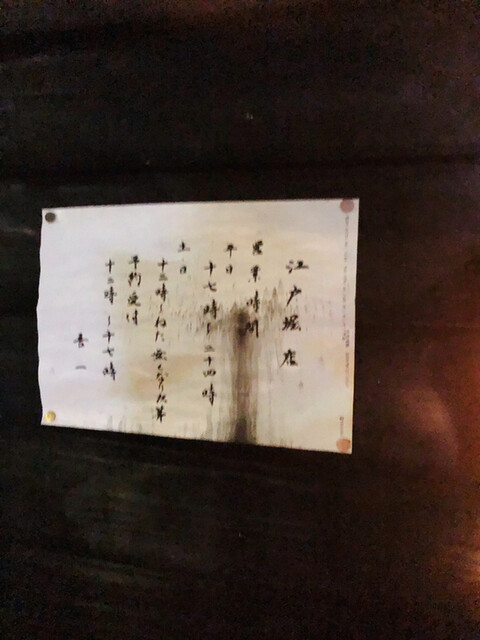 江戸堀店
営業時間
平日
十七時〜二十四時
土日
十三時〜ねた無くなり次第
予約受付
十三時〜十七時
喜一